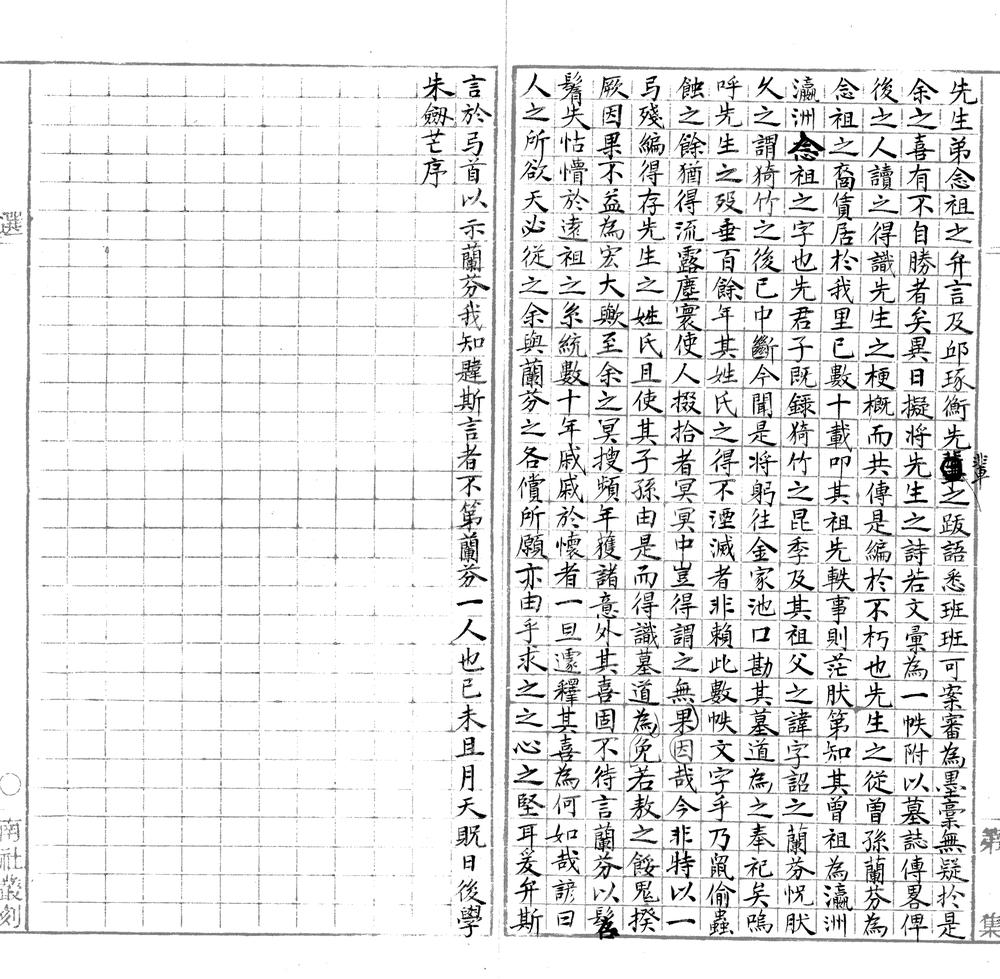 先生弟念祖之弁言及邱琢衡先輩之跋語悉班班可案審為墨稾無疑於是
余之喜有不自勝者矣異日擬將先生之詩若文彙為一帙附以墓誌傳畧俾
後之人讀之得識先生之梗概而共傳是編於不朽也先生之從曾孫蘭芬為
念祖之裔賃居於我里已數十載叩其祖先軼事則茫肰第知其曾祖為瀛洲
瀛洲念祖之字也先君子既錄猗竹之昆季及其祖父之諱字詔之蘭芬怳肰
久之謂猗竹之後已中斷今聞是將躬往金家池口勘其墓道為之奉祀矣嗚
呼先生之歿垂百餘年其姓氏之得不湮滅者非賴此數帙文字乎乃鼠偷蟲
蝕之餘猶得流露塵寰使人掇拾者冥冥中豈得謂之無果因哉今非特以一
弓殘編得存先生之姓氏且使其子孫由是而得識墓道為免若敖之餒鬼揆
厥因果不益為宏大歟至余之冥搜頻年獲諸意外其喜固不待言蘭芬以髫
髫失怙懵於遠祖之系統數十年戚戚於懷者一旦遽釋其喜為何如哉諺曰
人之所欲天必從之余與蘭芬之各償所願亦由乎求之之心之堅耳爰弁斯
言於弓首以示蘭芬我知韙斯言者不第蘭芬一人也已未且月天貺日後學
朱劔芒序
選
南社叢刻
第
集